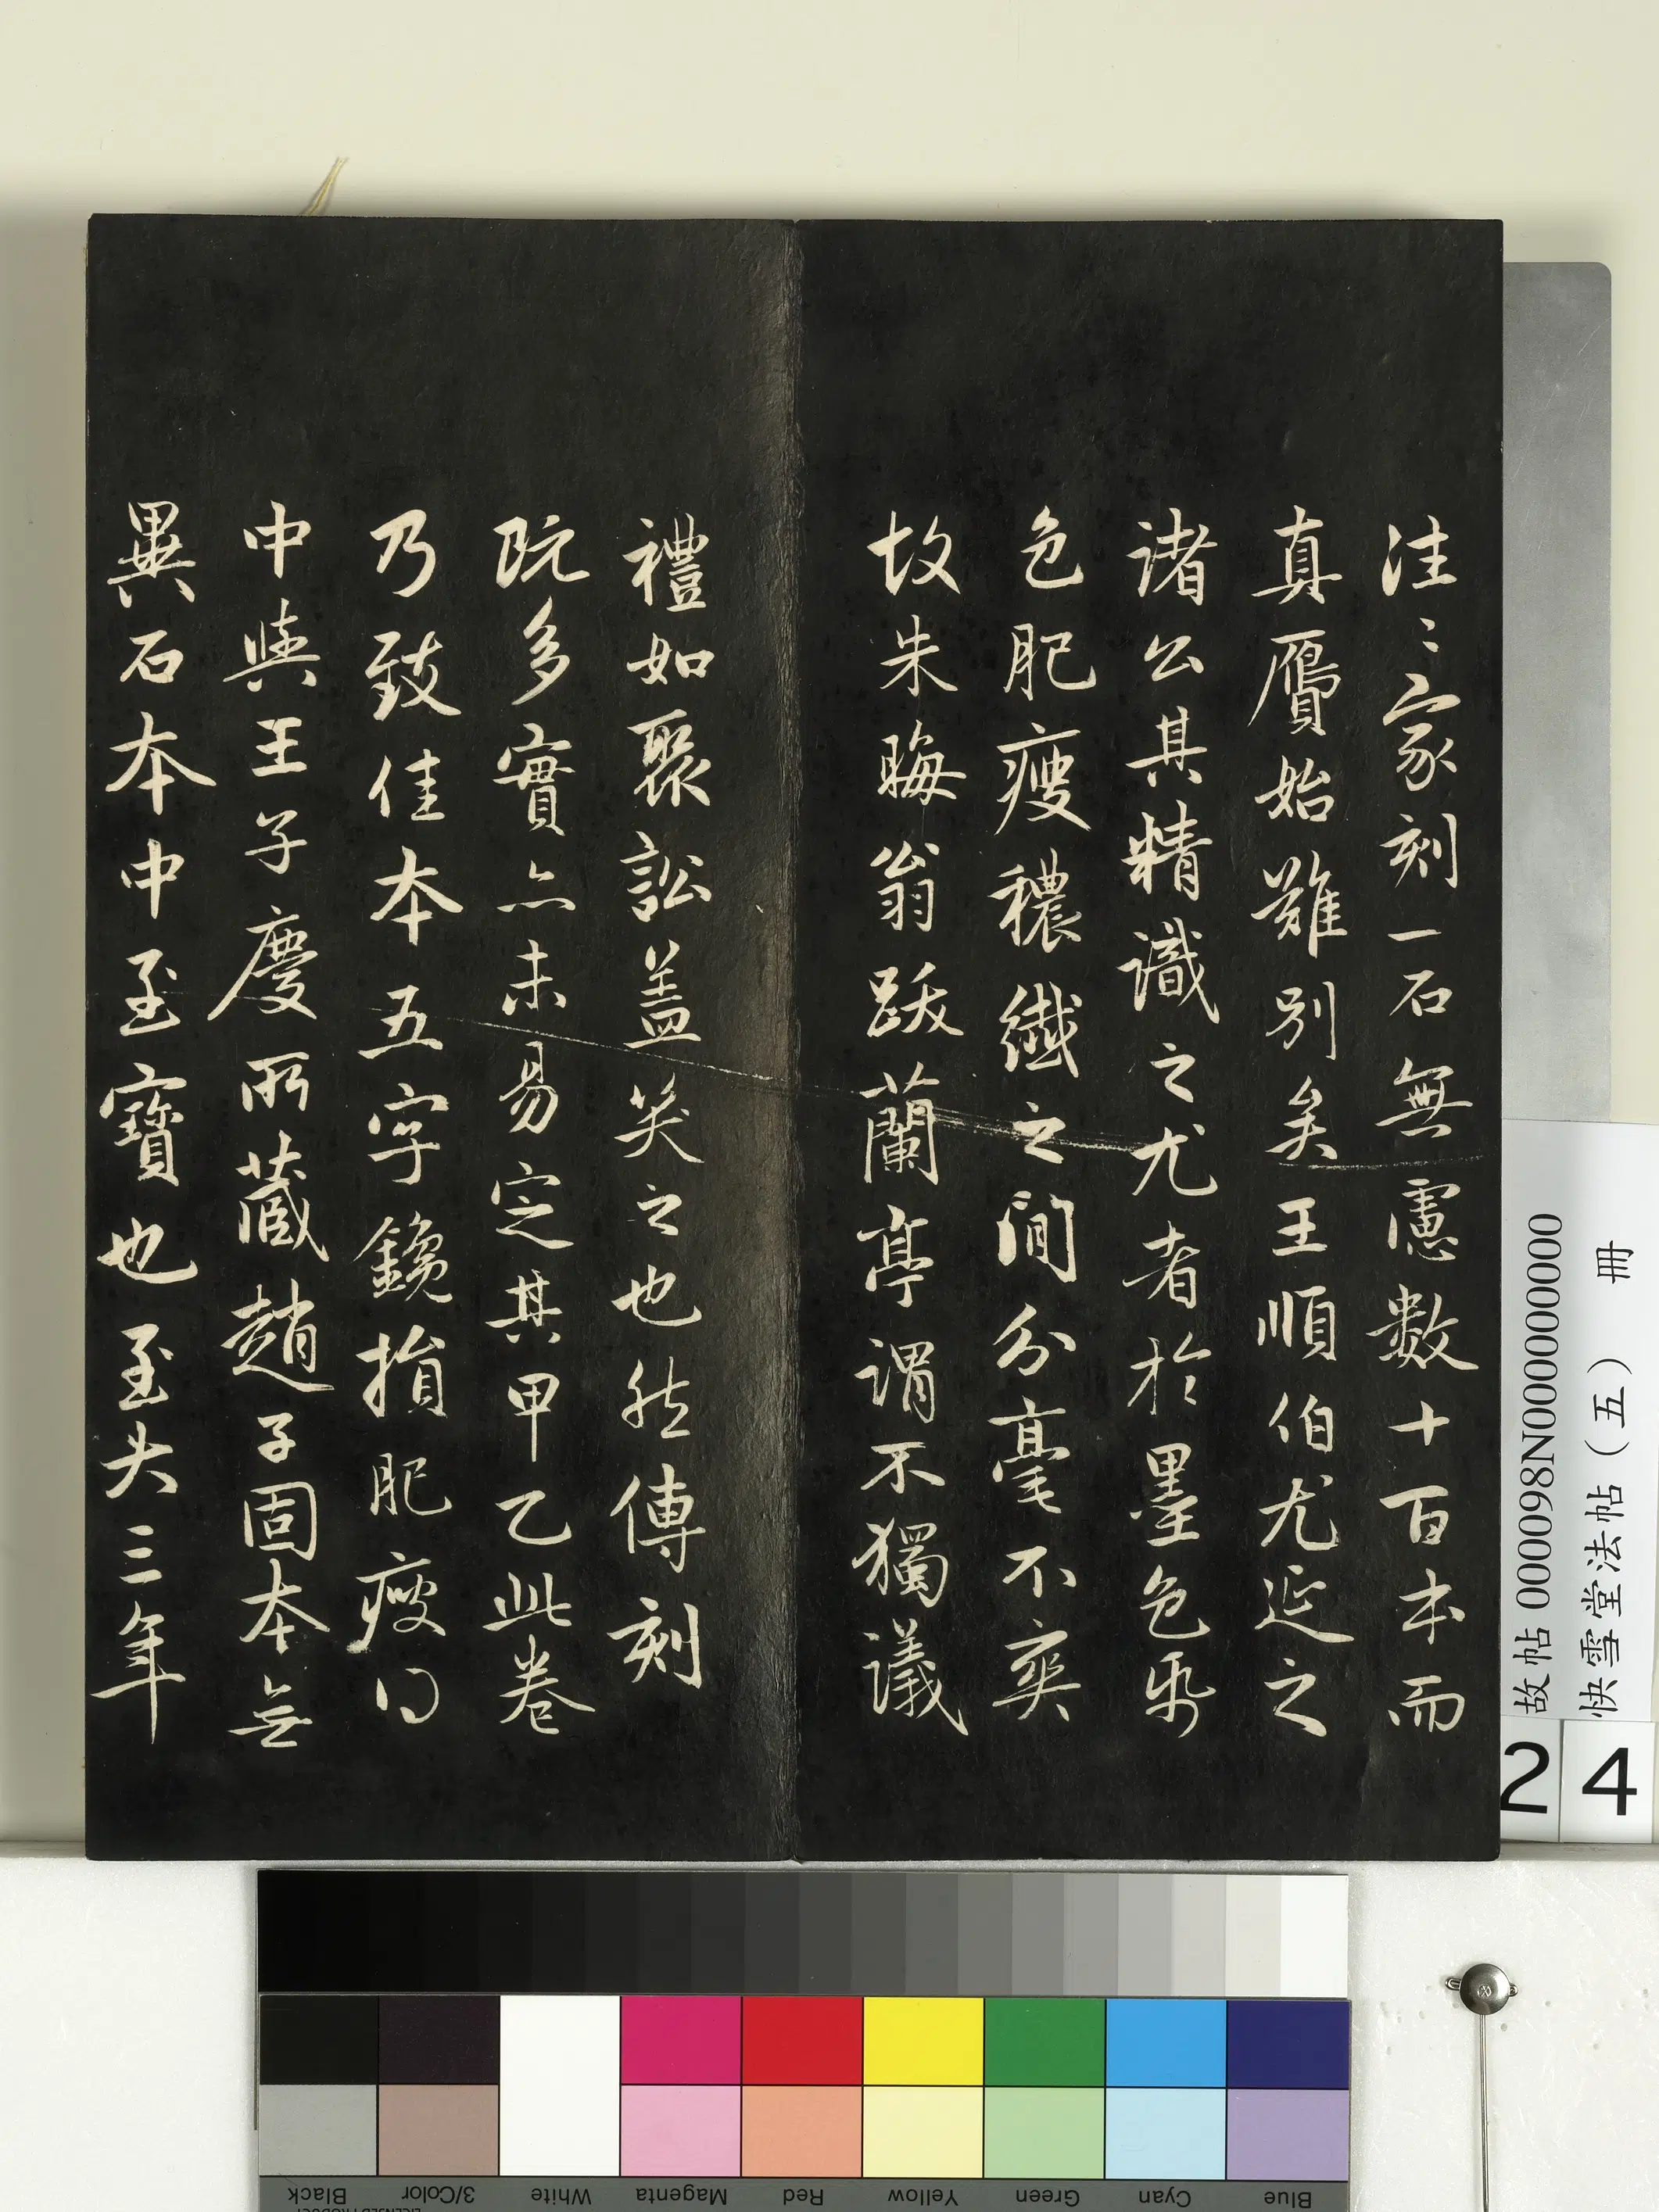 往〻家刻一石無慮數十百本而
真贗始難別矣王順伯尤延之
諸公其精識之尤者於墨色帋
色肥瘦穠纖之間分毫不爽
故朱晦翁跋蘭亭謂不獨議
禮如聚訟蓋笑之也然傳刻
既多實亦未易定其甲乙此卷
乃致佳本五字鑱損肥瘦得
中與王子慶所藏趙子固本無
異石本中至寶也至大三年
故帖 000098N000000000
快雪堂法帖（五） 冊
24
Black
3/Color
White
Magenta
Red
Yellow
Green
Cyan
Blue